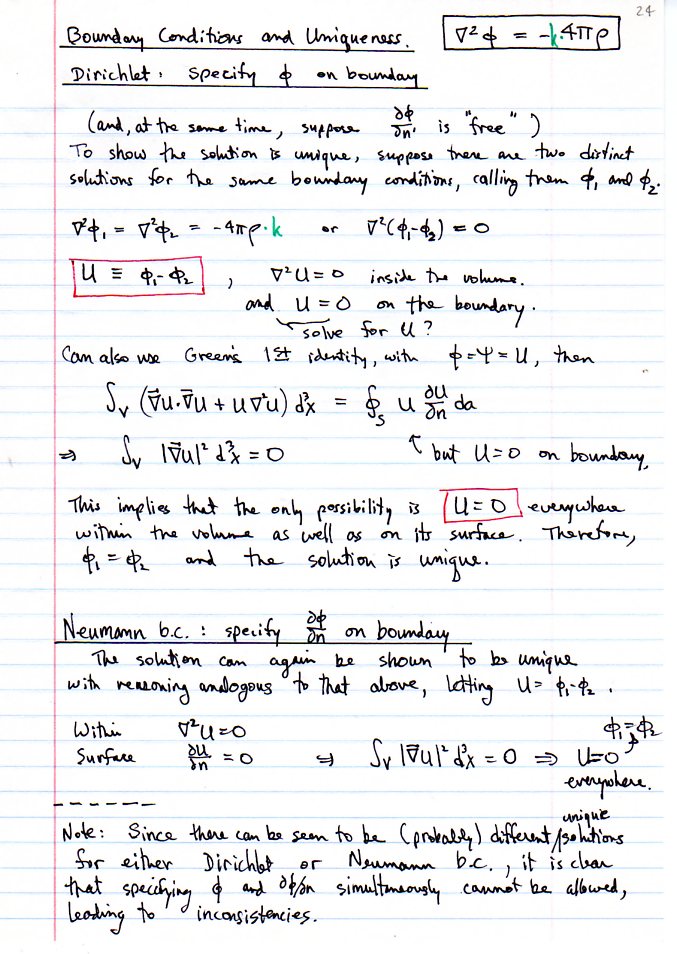 24
Boundary Conditions and Uniqueness.
∇²φ = -k·4πρ
Dirichlet: Specify φ on boundary
(and, at the same time, suppose ∂φ/∂n' is "free")
To show the solution is unique, suppose there are two distinct
solutions for the same boundary conditions, calling them φ₁ and φ₂.
∇²φ₁ = ∇²φ₂ = -4πρ·k or ∇²(φ₁-φ₂) = 0
U ≡ φ₁-φ₂ , ∇²U=0 inside the volume.
and U=0 on the boundary.
solve for U?
Can also use Green's 1st identity, with φ=Ψ=U, then
∫ᵥ (∇⃗u·∇⃗u + u∇²u) d³x = ∮ₛ u ∂U/∂n da
⇒ ∫ᵥ |∇⃗u|² d³x = 0 ↑ but U=0 on boundary,
This implies that the only possibility is U=0 everywhere
within the volume as well as on its surface. Therefore,
φ₁ = φ₂ and the solution is unique.
Neumann b.c.: specify ∂φ/∂n on boundary
The solution can again be shown to be unique
with reasoning analogous to that above, letting U= φ₁-φ₂.
φ₁=φ₂
Within ∇²U=0
Surface ∂U/∂n = 0 ⇒ ∫ᵥ |∇⃗u|² d³x = 0 ⇒ U=0
everywhere.
unique
Note: Since there can be seen to be (probably) different / solutions
for either Dirichlet or Neumann b.c., it is clear
that specifying φ and ∂φ/∂n simultaneously cannot be allowed,
leading to inconsistencies.